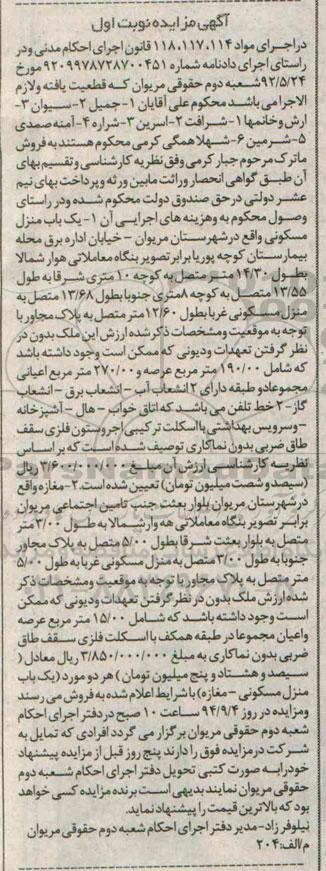 آگهی مزایده نوبت اول
در اجرای مواد ۱۱۴، ۱۱۷، ۱۱۸ قانون اجرای احکام مدنی و در
راستای اجرای دادنامه شماره ۹۲۰۹۹۷۸۷۲۸۷۰۰۴۵۱ مورخ
۹۲/۵/۲۴ شعبه دوم حقوقی مریوان که قطعیت یافته و لازم
الاجرا می باشد محکوم علی آقایان ۱- جمیل ۲- سیوان ۳-
آرش و خانمها ۱- شرافت ۲- اسرین ۳- شراره ۴- آمنه صمدی
۵- شرمین ۶- شهلا همگی کرمی محکوم هستند به فروش
ماترک مرحوم جبار کرمی وفق نظریه کارشناسی و تقسیم بهای
آن طبق گواهی انحصار وراثت مابین ورثه و پرداخت بهای نیم
عشر دولتی در حق صندوق دولت محکوم شده و در راستای
وصول محکوم به و هزینه های اجرایی آن ۱- یک باب منزل
مسکونی واقع در شهرستان مریوان - خیابان اداره برق محله
بیمارستان کوچه پوریا برابر تصویر بنگاه معاملاتی هوار شمالا
بطول ۱۴/۳۰ متر متصل به کوچه ۱۰ متری شرقا به طول
۱۳/۵۵ متصل به کوچه ۸ متری جنوبا بطول ۱۳/۶۸ متصل به
منزل مسکونی غربا بطول ۱۲/۶۰ متر متصل به پلاک مجاور با
توجه به موقعیت و مشخصات ذکر شده ارزش این ملک بدون در
نظر گرفتن تعهدات و دیونی که ممکن است وجود داشته باشد
که شامل ۱۹۰/۰۰ متر مربع عرصه و ۲۷۰/۰۰ متر مربع اعیانی
مجموعا دو طبقه دارای ۲ انشعاب آب - انشعاب برق - انشعاب
گاز - ۲ خط تلفن می باشد که اتاق خواب - هال - آشپزخانه
- و سرویس بهداشتی با اسکلت ترکیبی آجر و ستون فلزی سقف
طاق ضربی بدون نماکاری توصیف شده است که بر اساس
نظریه کارشناسی ارزش آن مبلغ ۳/۶۰۰/۰۰۰/۰۰۰ ریال
(سیصد و شصت میلیون تومان) تعیین شده است. ۲- مغازه واقع
در شهرستان مریوان بلوار بعثت جنب تامین اجتماعی مریوان
برابر تصویر بنگاه معاملاتی هه وار شمالا به طول ۳/۰۰ متر
متصل به بلوار بعثت شرقا بطول ۵/۰۰ متصل به پلاک مجاور
جنوبا به طول ۳/۰۰ متصل به منزل مسکونی غربا به طول ۵/۰۰
متر متصل به پلاک مجاور با توجه به موقعیت و مشخصات ذکر
شده ارزش ملک بدون در نظر گرفتن تعهدات و دیونی که ممکن
است وجود داشته باشد که شامل ۱۵/۰۰ متر مربع عرصه
و اعیان مجموعا در طبقه همکف با اسکلت فلزی سقف طاق
ضربی بدون نماکاری به مبلغ ۳/۸۵۰/۰۰۰/۰۰۰ ریال معادل (
سیصد و هشتاد و پنج میلیون تومان) هر دو مورد (یک باب
منزل مسکونی - مغازه) با شرایط اعلام شده به فروش می رسند
و مزایده در روز ۹۴/۹/۴ ساعت ۱۰ صبح در دفتر اجرای احکام
شعبه دوم حقوقی مریوان برگزار می گردد افرادی که تمایل به
شرکت در مزایده فوق را دارند پنج روز قبل از مزایده پیشنهاد
خود را به صورت کتبی تحویل دفتر اجرای احکام شعبه دوم
حقوقی مریوان نمایند بدیهی است برنده مزایده کسی خواهد
بود که بالاترین قیمت را پیشنهاد نماید.
نیلوفر زاد- مدیر دفتر اجرای احکام شعبه دوم حقوقی مریوان
م/الف: ۲۰۴